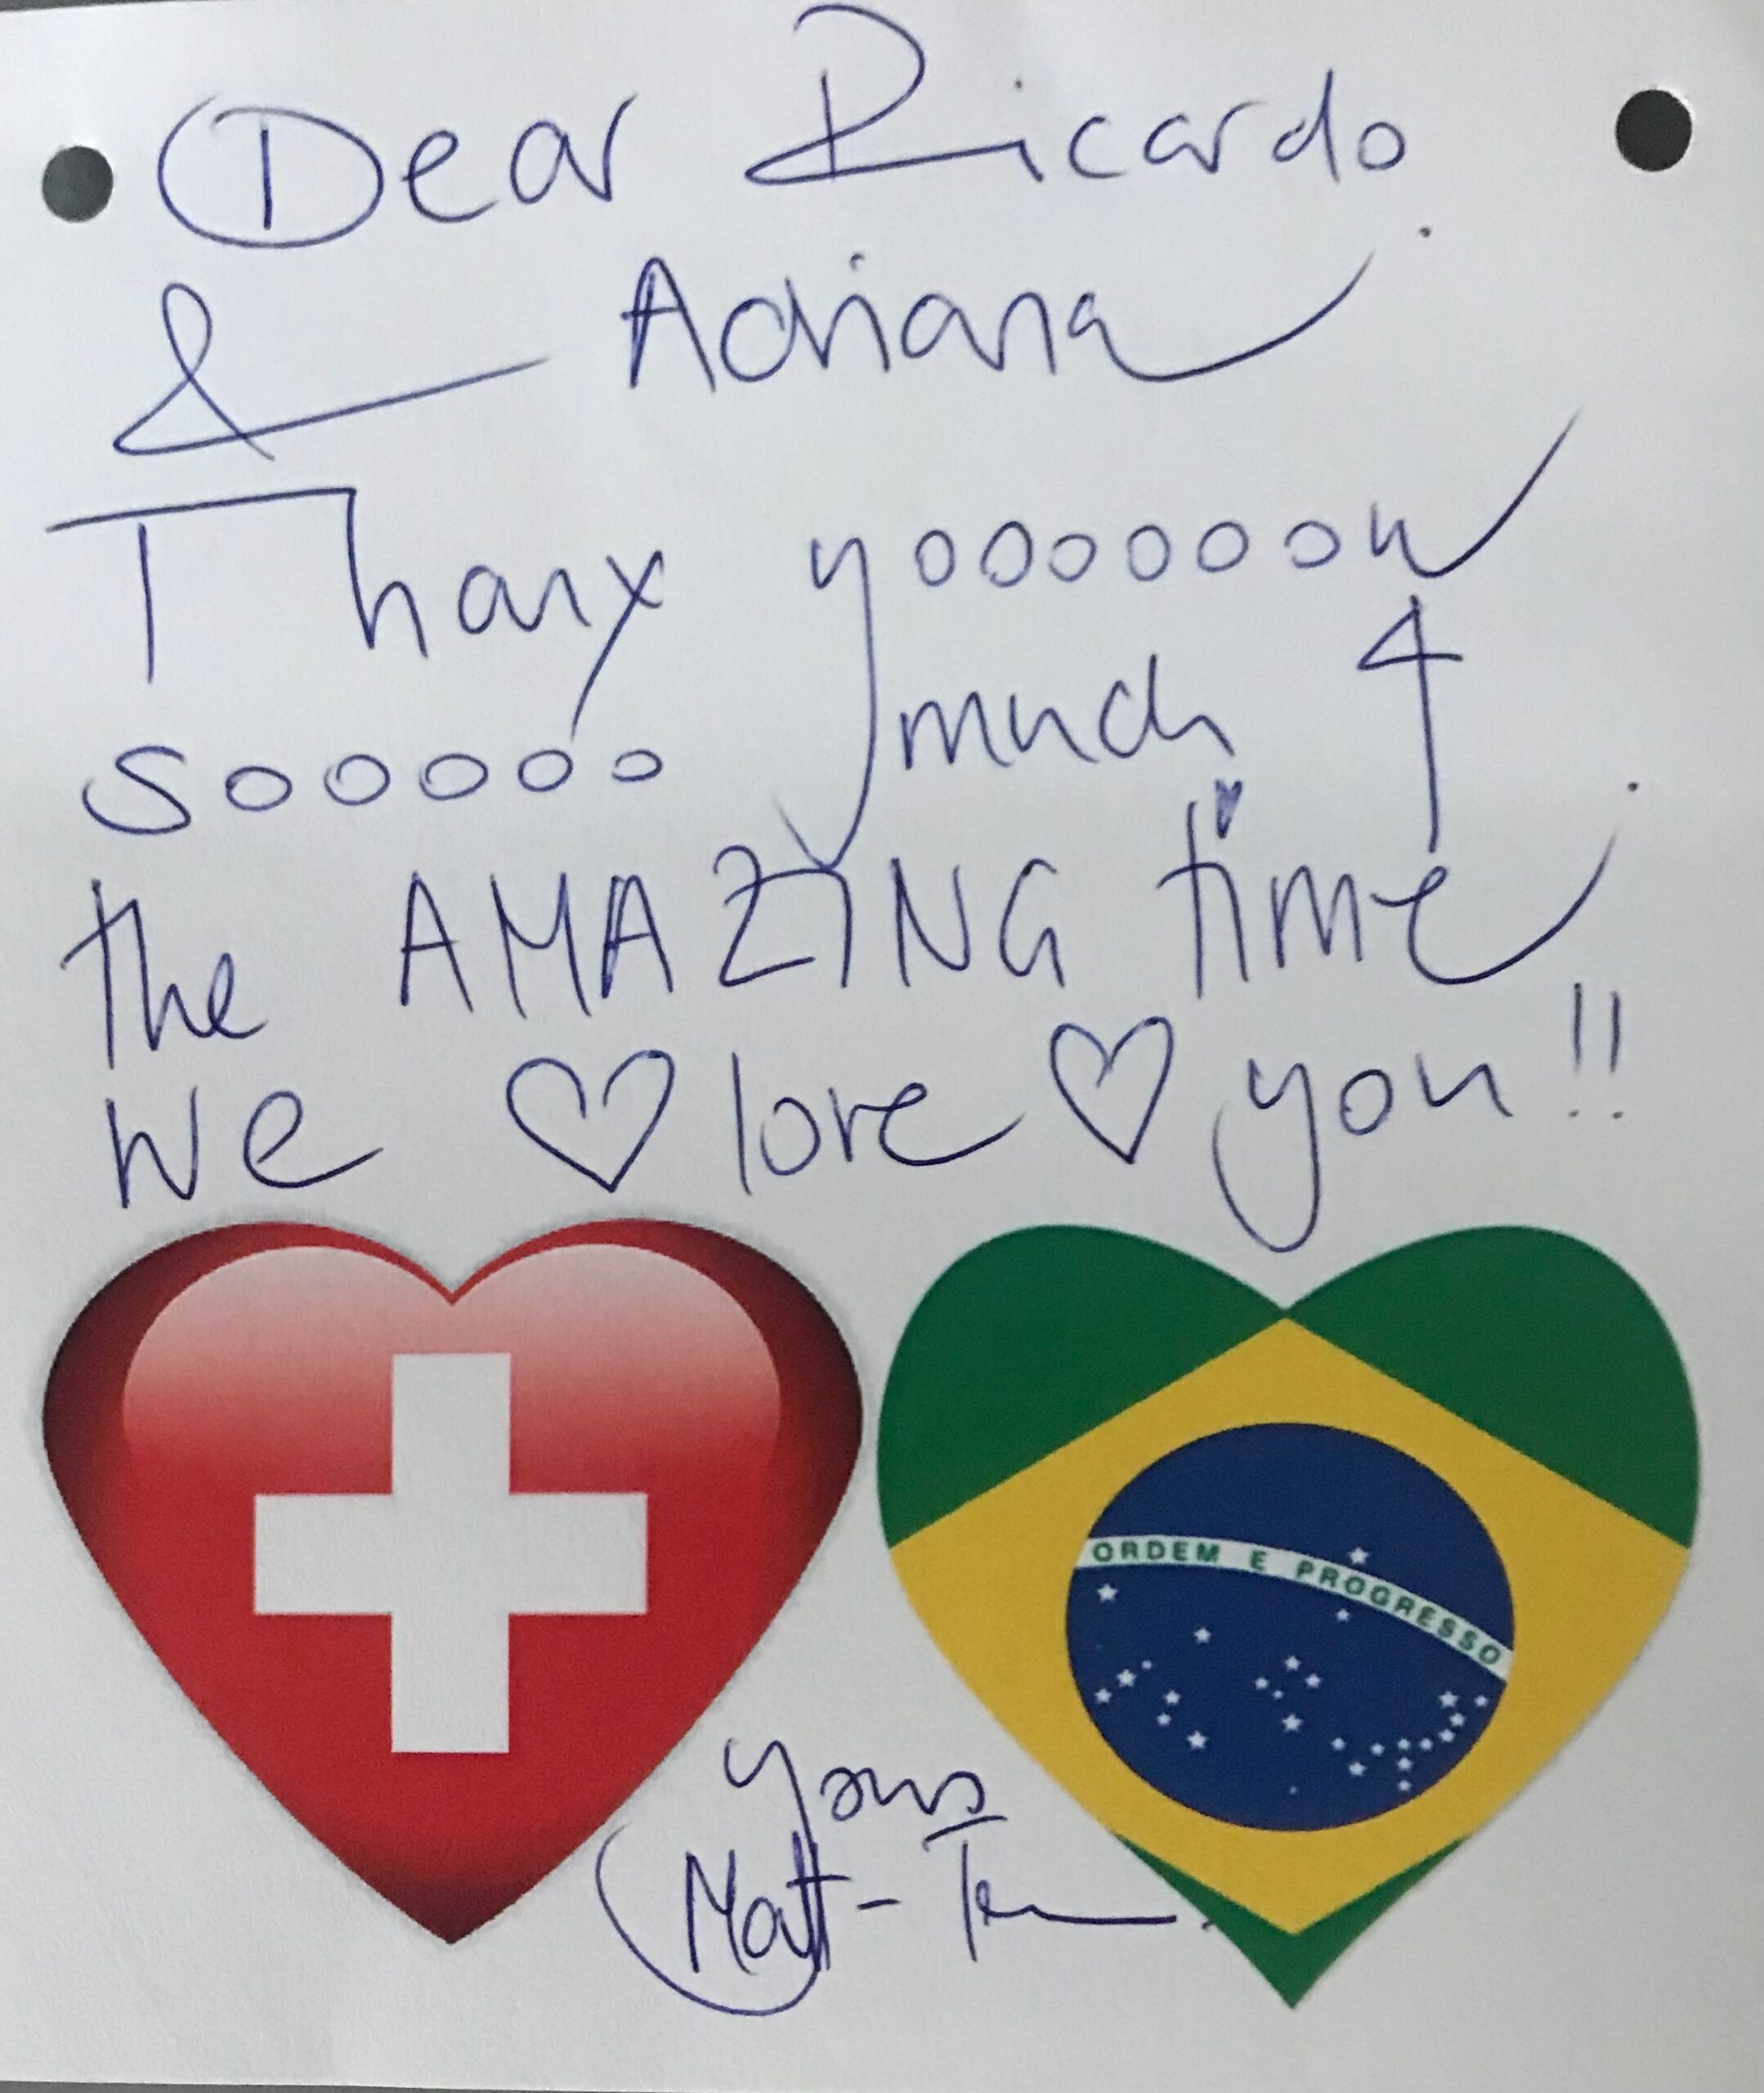 Dear Ricardo
& Adriana
Thanx yooooooou
sooooo much 4
the AMAZING time
We ♡ love ♡ you!!
ORDEM E PROGRESSO
Yours
Matt-